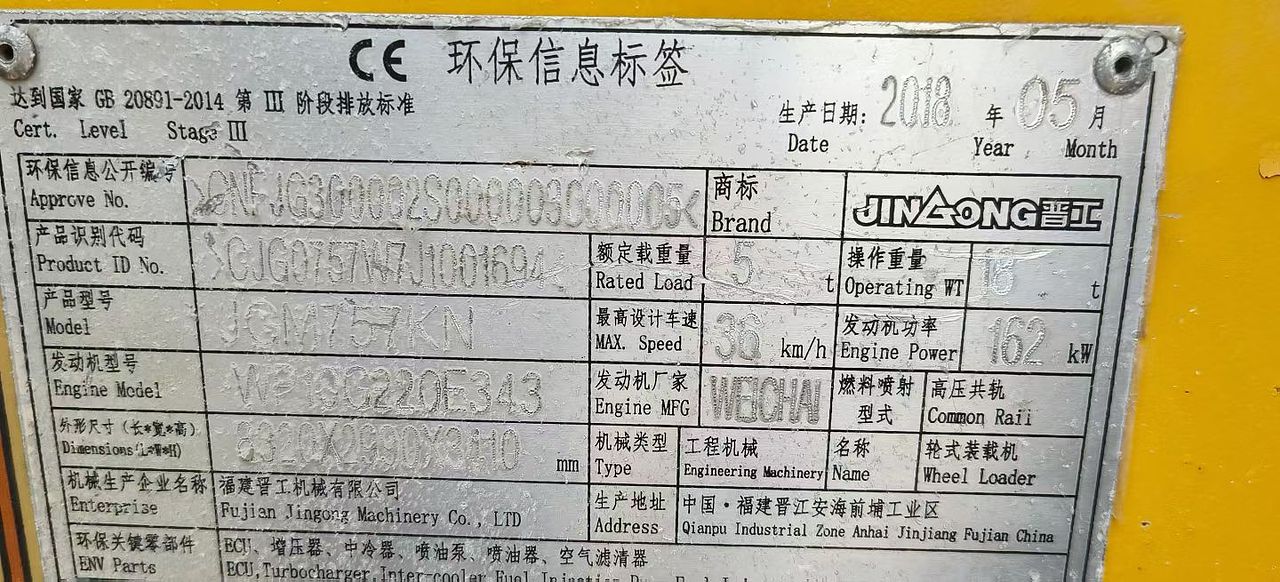 CE 环保信息标签
达到国家 GB 20891-2014 第 III 阶段排放标准
Cert. Level Stage III
生产日期: 2018 年 05 月
Date Year Month
环保信息公开编号
Approve No.
商标
Brand
JINGONG晋工
产品识别代码
Product ID No.
>CJG0757W7J1001694
额定载重量
Rated Load
5 t
操作重量
Operating WT
t
产品型号
Model
JGM757KN
最高设计车速
MAX. Speed
36 km/h
发动机功率
Engine Power
162 kW
发动机型号
Engine Model
发动机厂家
Engine MFG
WEICHAI
燃料喷射
型式
高压共轨
Common Rail
外形尺寸 (长*宽*高)
Dimensions(L*W*H)
mm
机械类型
Type
工程机械
Engineering Machinery
名称
Name
轮式装载机
Wheel Loader
机械生产企业名称
Enterprise
福建晋工机械有限公司
Fujian Jingong Machinery Co., LTD
生产地址
Address
中国·福建晋江安海前埔工业区
Qianpu Industrial Zone Anhai Jinjiang Fujian China
环保关键零部件
ENV Parts
ECU、增压器、中冷器、喷油泵、喷油器、空气滤清器
ECU,Turbocharger,Inter-cooler,Fuel